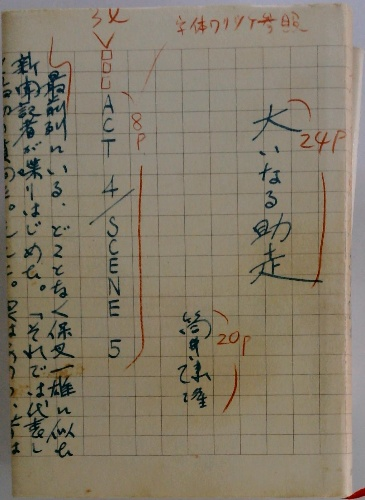 字体ワリツケ参照
24P
大いなる助走
20P
筒井康隆
3行
8P
ACT 4/SCENE 5
最前列にいる、どことなく保叉一雄に似た
新聞記者が喋りはじめた。「それでは代表し